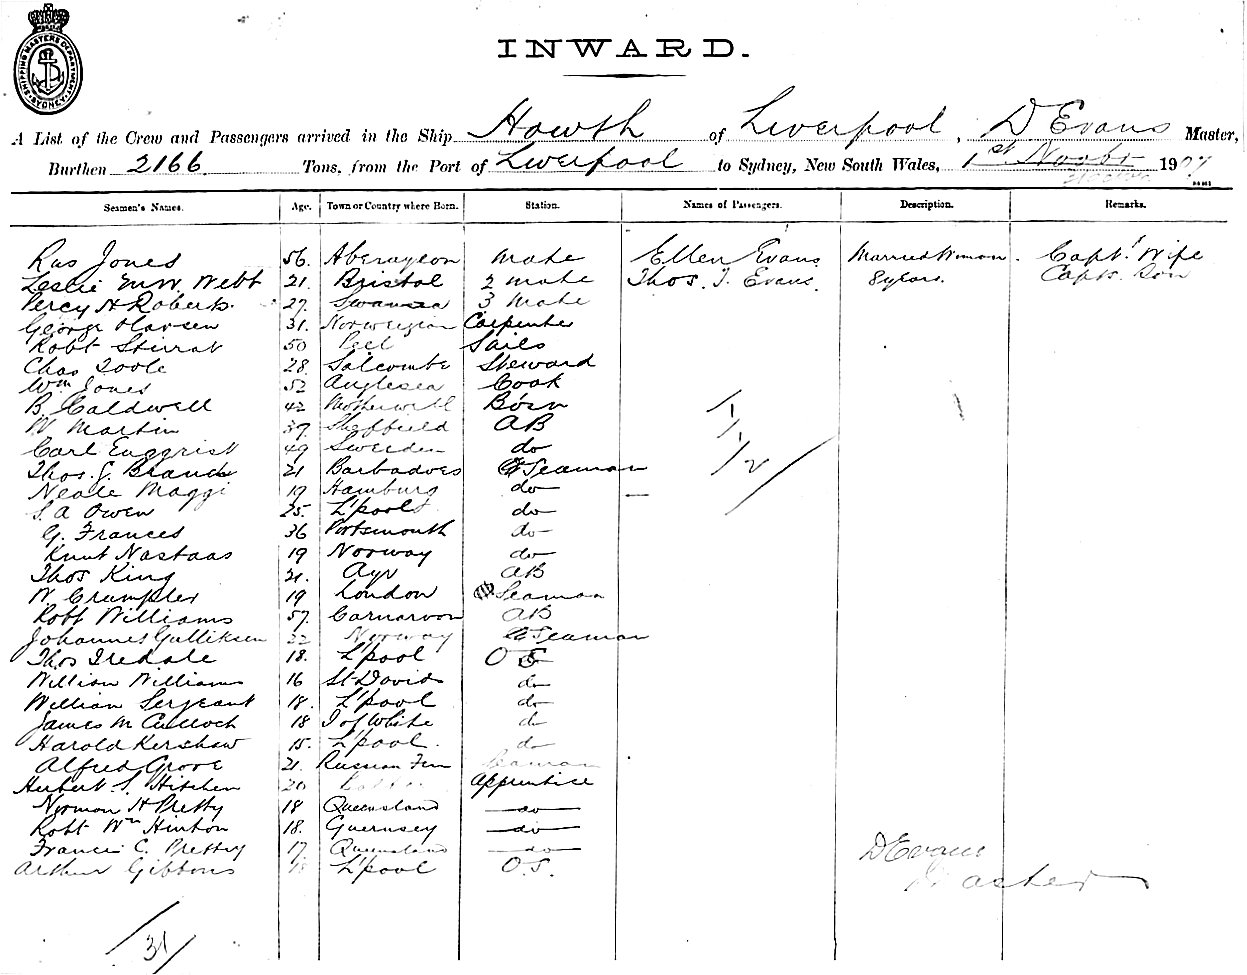 SHIPPING MASTERS DEPARTMENT SYDNEY
INWARD.
A List of the Crew and Passengers arrived in the Ship Howth of Liverpool, D Evans Master,
Burthen 2166 Tons, from the Port of Liverpool to Sydney, New South Wales, 1st Novbr 1907
Seamen's Names. Age. Town or Country where Born. Station. Names of Passengers. Description. Remarks.
Ras Jones 56. mate Ellen Evans Married Woman. Capt's Wife
Leslie Webb 21. Bristol 2 mate Thos. J. Evans. 8 years. Capts. Son
Percy H Roberts. 27. Swansea 3 mate
George Olarsen 31. Norwegian Carpenter
Robt Stirrat 50 Peel Sails
Chas Toole 28. Salcombe Steward
Wm Jones 52 Anglesea Cook
B. Caldwell 42 Motherwell Bosn
W Martin 39 Sheffield AB
Carl Enqqrist 49 Sweeden do
Thos. J. Branch 21 Barbadoes Seaman
Neale Maggi 19 Hamburg do
S. A Owen 25. L'pool do
G. Frances 36 Portsmouth do
Knut Nastaas 19 Norway do
Thos King 21. Ayr AB
W Crumpler 19 London Seaman
Robt Williams 57. Carnarvon AB
Johannes Gulliksen 22 Norway Seaman
Thos Iredale 18. L'pool O S
William Williams 16 St Davids do
William Sergeant 18. L'pool do
James M Culloch 18 I of White do
Harold Kershaw 15. L'pool. do
Alfred Grove 21. Russian Fin Seaman
Herbert S. Hitchen 20 Apprentice
Norman H Pretty 18 Queensland do
Robt Wm Hinton 18. Guernsey do
Francis C. Pretty 17 Queensland do
Arthur Gibbons 18 L'pool O.S.
D Evans
Master
31